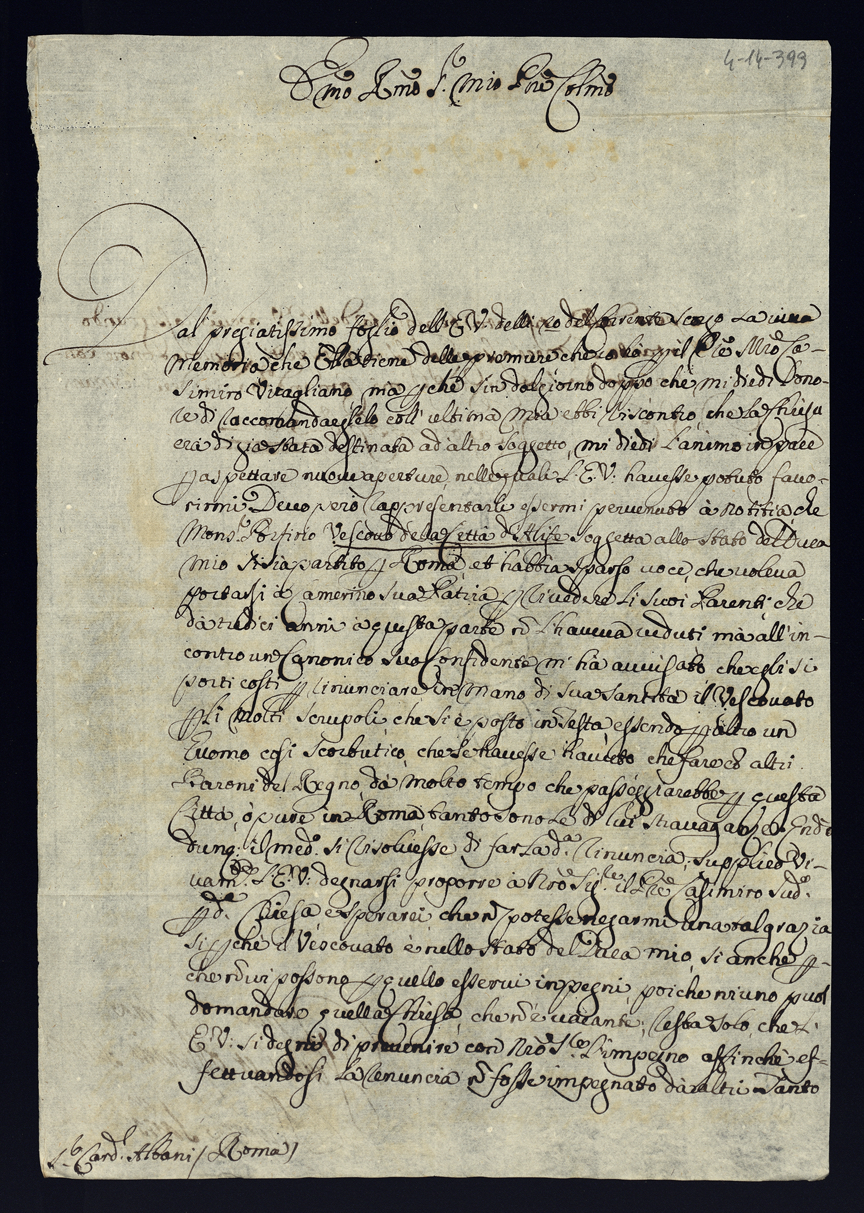 4-14-399
Emo Rmo Sr. mio Pne Colmo
Dal pregiatissimo foglio dell'E.V. delli 20 del corrente scorgo la viva
memoria che Ella tiene delle premure che Le porsi pel Pre Mro Ca-
simiro Vitagliano, mà pche sin dal giorno doppo che mi diedi l'ono-
re di raccomandarglielo coll'ultima mia ebbi riscontro che la Chiesa
era di già stata destinata ad'altro soggetto, mi diedi l'animo in pace
p aspettare nuove aperture, nelle quali L'E.V. havesse potuto favo-
rirmi. Devo però rappresentarle essermi pervenuto à notitia, che
Monsr. Porfirio Vescovo della Città d'Alife soggetta allo stato del Duca
mio si sia partito p Roma, et habbia sparso voce, che voleva
portarsi à Camerino sua Patria p rivedere li suoi Parenti che
dà tredici anni à questa parte nō l'haveva veduti mà all'in-
contro un Canonico suo Confidente m'hà avvisato che egli si
porti costì p rinunciare in mano di sua santità il Vescovato
p li molti scrupoli che si è posto in testa essendo p altro un
Huomo così scorbutico, che se havesse havuto che fare cō altri
Baroni del Regno, dà molto tempo che passeggiarebbe p questa
Città, ò pure in Roma tanto sono le di lui stravaganze. Quando
dunq; il medo. si risolvesse di far la da. rinuncia, supplico vi-
vamte. L'E.V. degnarsi proporre à Nro Sigre. il Pre Casimiro sudo.
p da. Chiesa e sperarei che nō potesse negarmi una tal grazia
sì pche il Vescovato è nello stato del Duca mio, sì anche p-
che nō vi possono p quello esservi impegni, poiche niuno puol
domandare quella Chiesa che nō è vacante; resta solo, che L'
E.V. si degni di prevenire con Nro Sre. l'impegno affinche ef-
fettuandosi la renuncia nō fosse impegnato dà altri. Tanto
Sr. Cardl. Albani / Roma /